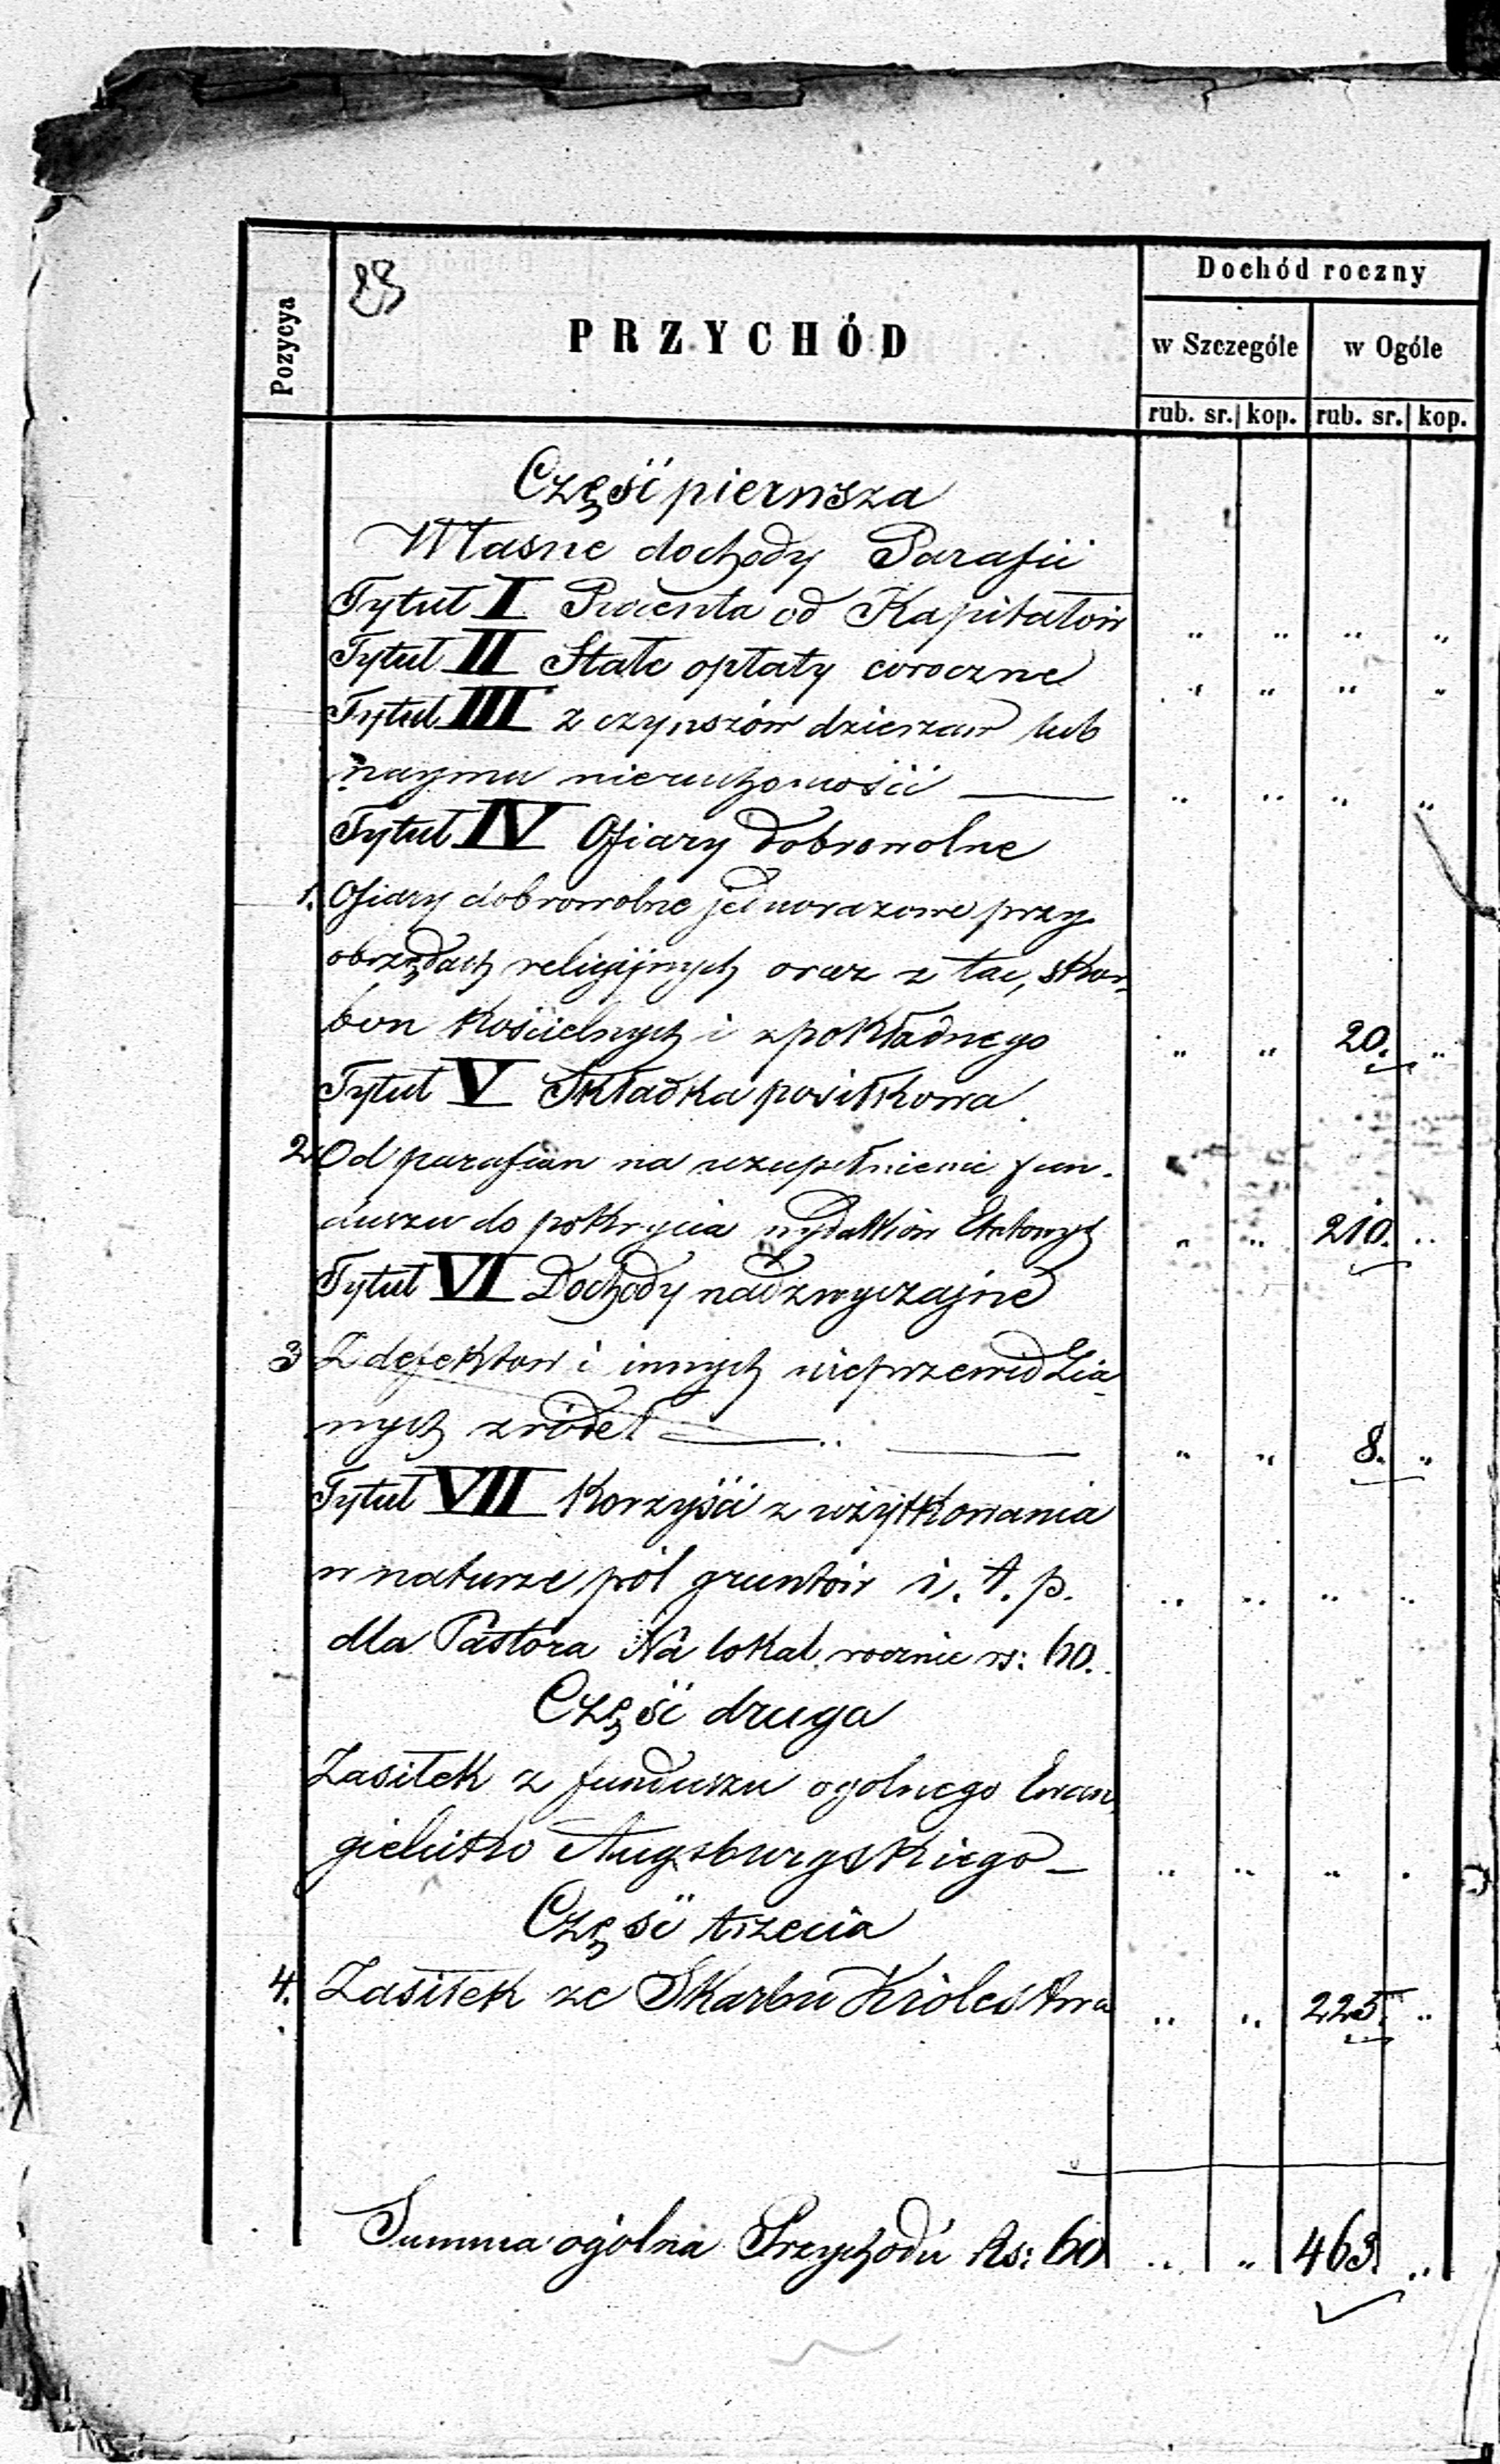 Dochód roczny
Pozycya
PRZYCHÓD
w Szczególe w Ogóle
rub. sr. kop. rub. sr. kop.
Część pierwsza
Własne dochody Parafii
Tytuł I Procenta od Kapitałów " " " "
Tytuł II Stałe opłaty coroczne " " " "
Tytuł III z czynszów dzierzaw lub
naymu nieruchomości — " " " "
Tytuł IV Ofiary dobrowolne
1. Ofiary dobrowolne jednorazowe przy
obrzędach religijnych oraz z tac, skar-
bon kościelnych i z pokładnego " " 20. "
Tytuł V Składka posiłkowa
2. Od parafian na uzupełnienie fun-
duszu do pokrycia wydatków Etatowych " " 210. "
Tytuł VI Dochody nadzwyczajne
3 Z defektow i innych nieprzewidzia-
nych źródeł — " " 8. "
Tytuł VII Korzyści z użytkowania
w naturze pól gruntów i. t. p. " " " "
dla Pastora Na lokal rocznie rs: 60.
Część druga
Zasiłek z funduszu ogólnego Ewan-
gielicko Augsburgskiego — " " " "
Część trzecia
4. Zasiłek ze Skarbu Królestwa " " 225. "
Summa ogólna Przychodu Rs: 60 " " 463. "